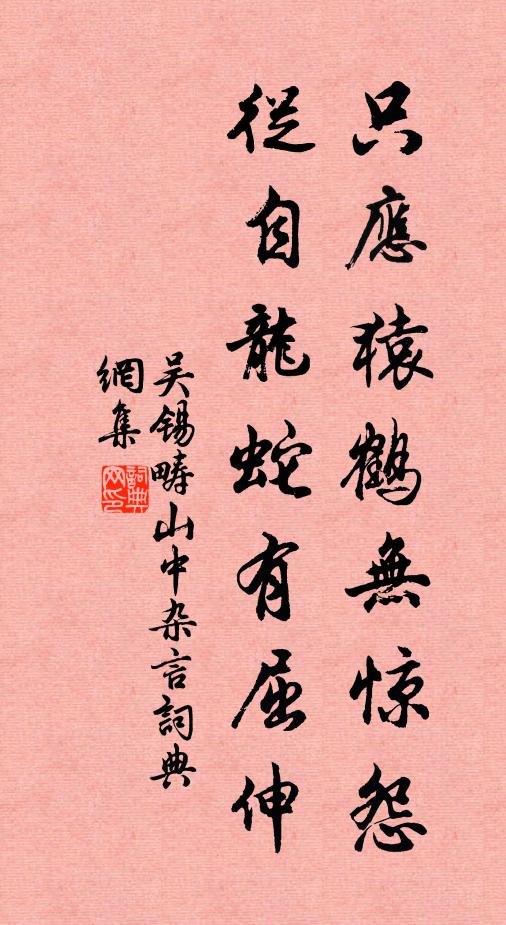 只應猿鶴無惊怨
從自龍蛇有屈伸
吴锡疇山中杂言詞典
網集
詞典
网印